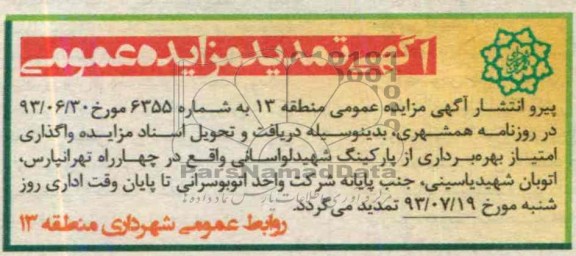 آگهی تمدید مزایده عمومی
پیرو انتشار آگهی مزایده عمومی منطقه ۱۳ به شماره ۶۳۵۵ مورخ ۹۳/۰۶/۳۰
در روزنامه همشهری، بدینوسیله دریافت و تحویل اسناد مزایده واگذاری
امتیاز بهره‌برداری از پارکینگ شهیدلواسانی واقع در چهارراه تهرانپارس،
اتوبان شهیدیاسینی، جنب پایانه شرکت واحد اتوبوسرانی تا پایان وقت اداری روز
شنبه مورخ ۹۳/۰۷/۱۹ تمدید می‌گردد.
روابط عمومی شهرداری منطقه ۱۳
ParsNamadData